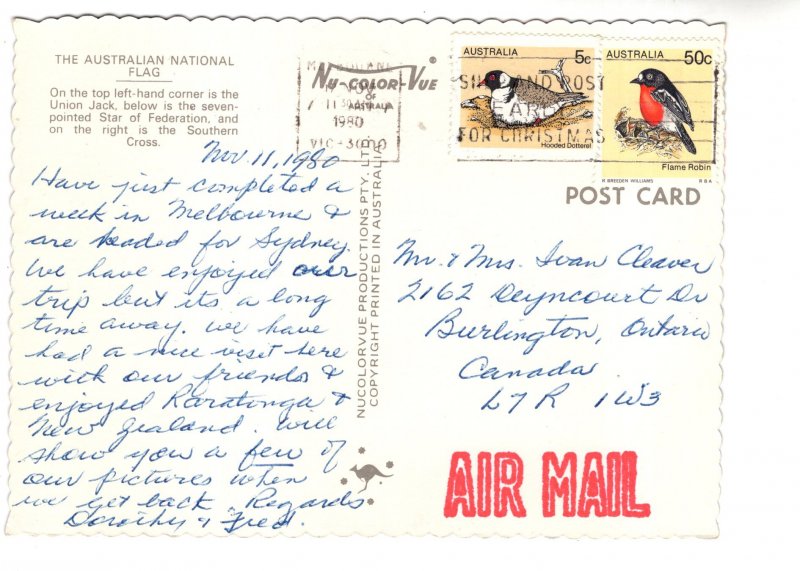 THE AUSTRALIAN NATIONAL
FLAG
On the top left-hand corner is the
Union Jack, below is the seven-
pointed Star of Federation, and
on the right is the Southern
Cross.
Nov. 11, 1980
Have just completed a
week in Melbourne &
are headed for Sydney.
We have enjoyed our
trip but its a long
time away. We have
had a nice visit here
with our friends &
enjoyed Raratonga &
New Zealand. Will
show you a few of
our pictures when
we get back. Regards
Dorothy & Fred.
NU-COLOR-VUE
OF
AUSTRALIA
MELBOURNE
1980
VIC-3000
NUCOLORVUE PRODUCTIONS PTY. LTD.
COPYRIGHT PRINTED IN AUSTRALIA
AUSTRALIA 5c
Hooded Dotterel
AUSTRALIA 50c
Flame Robin
R BREEDEN WILLIAMS RBA
AND POST
EARLY
FOR CHRISTMAS
POST CARD
Mr. & Mrs. Ivan Cleaver
2162 Deyncourt Dr
Burlington, Ontario
Canada.
L7R 1W3
AIR MAIL